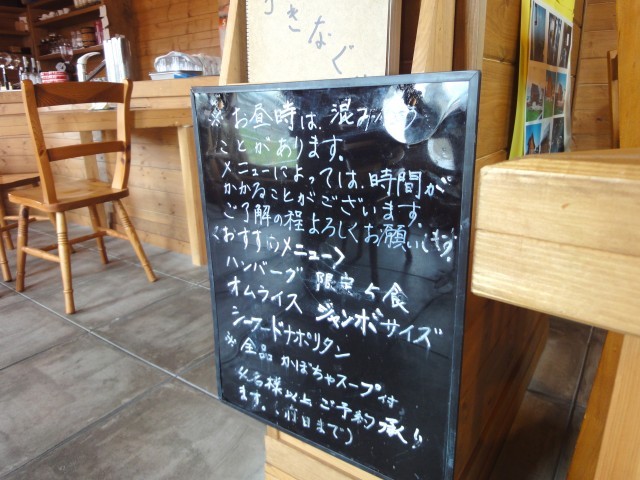 きなぐ
※お昼時は、混み合う
ことがあります。
メニューによっては、時間が
かかることがございます。
ご了解の程よろしくお願いします。
〈おすすめメニュー〉
ハンバーグ 限定5食
オムライス ジャンボサイズ
シーフードナポリタン
※全品 かぼちゃスープ付
名様以上 ご予約承り
ます。(前日まで)